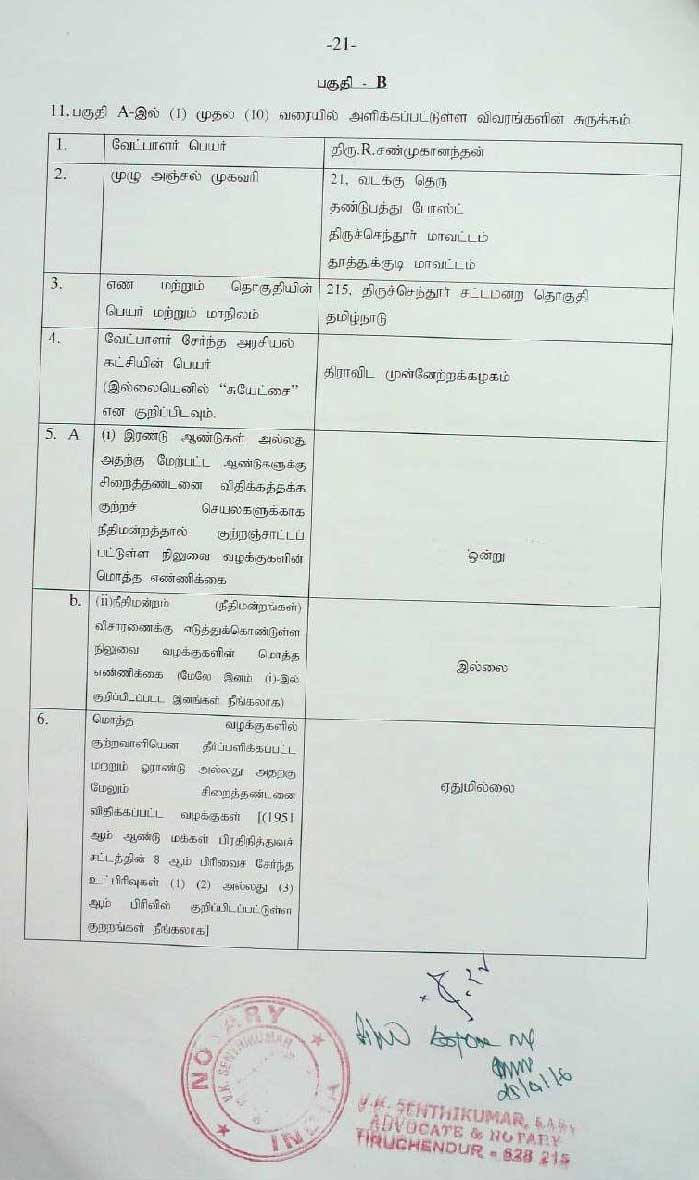 -21-
பகுதி - B
11.பகுதி A-இல் (1) முதல (10) வரையில் அளிக்கப்பட்டுள்ள விவரங்களின் சுருக்கம்
1. வேட்பாளர் பெயர் திரு.R.சண்முகானந்தன்
2. முழு அஞ்சல் முகவரி 21, வடக்கு தெரு
தண்டுபத்து போஸ்ட்
திருச்செந்தூர் மாவட்டம்
தூத்துக்குடி மாவட்டம்
3. எண மற்றும் தொகுதியின் 215, திருச்செந்தூர் சட்டமன்ற தொகுதி
பெயர் மற்றும் மாநிலம் தமிழ்நாடு
4. வேட்பாளர் சேர்ந்த அரசியல்
கட்சியின் பெயர் திராவிட முன்னேற்றக்கழகம்
(இல்லையெனில் "சுயேட்சை"
என குறிப்பிடவும்.
5. A (i) இரண்டு ஆண்டுகள் அல்லது
அதற்கு மேற்பட்ட ஆண்டுகளுக்கு
சிறைத்தண்டனை விதிக்கத்தக்க
குற்றச் செயல்களுக்காக
நீதிமன்றத்தால் குற்றஞ்சாட்டப்
பட்டுள்ள நிலுவை வழக்குகளின் ஒன்று
மொத்த எண்ணிக்கை
b. (ii)நீதிமன்றம் (நீதிமன்றங்கள்)
விசாரணைக்கு எடுத்துக்கொண்டுள்ள
நிலுவை வழக்குகளின் மொத்த
எண்ணிக்கை (மேலே இனம் (i)-இல் இல்லை
குறிப்பிடப்பட்ட இனங்கள் நீங்கலாக)
6. மொத்த வழக்குகளில்
குற்றவாளியென தீர்ப்பளிக்கபபட்ட
மற்றும் ஓராண்டு அல்லது அதற்கு
மேலும் சிறைத்தண்டனை ஏதுமில்லை
விதிக்கப்பட்ட வழக்குகள் [(1951
ஆம் ஆண்டு மக்கள் பிரதிநித்துவச்
சட்டத்தின் 8 ஆம் பிரிவைச சேர்ந்த
உட்பிரிவுகள் (1) (2) அல்லது (3)
ஆம் பிரிவில் குறிப்பிடப்பட்டுள்ள
குற்றங்கள் நீங்கலாக]
NOTARY
V.K. SENTHIKUMAR
INDIA
V.K. SENTHIKUMAR,
ADVOCATE & NOTARY
TIRUCHENDUR - 628 215